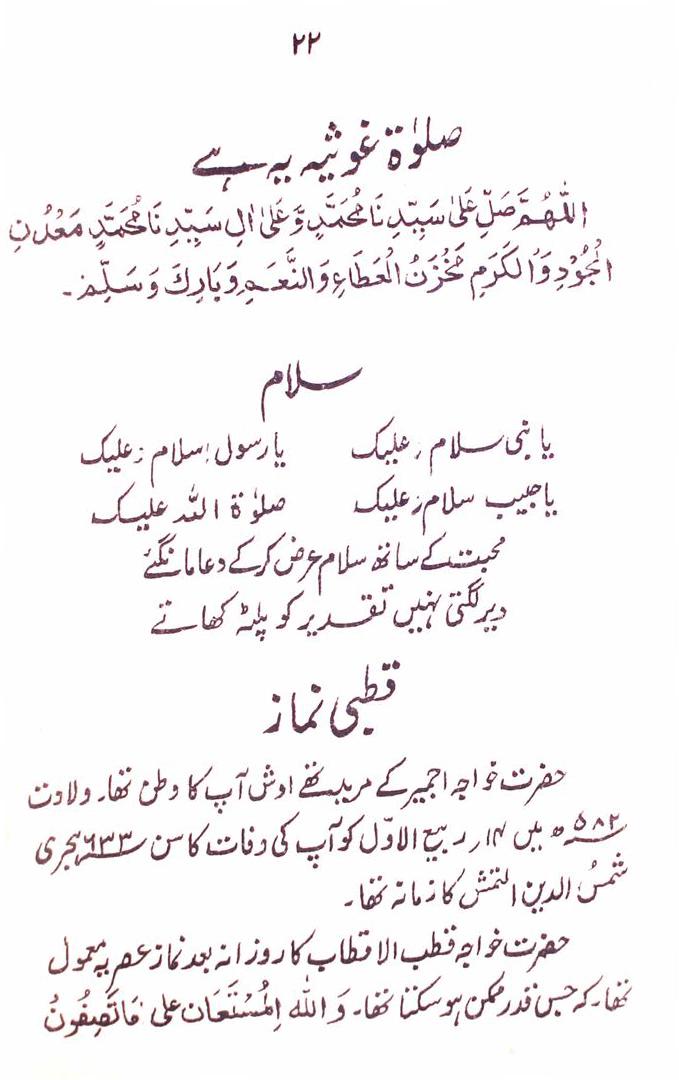 ۲۲
صلوٰۃ غوثیہ یہ ہے
اَللّٰھُمَّ صَلِّ عَلٰی سَیِّدِ نَا مُحَمَّدٍ وَّعَلٰی اٰلِ سَیِّدِ نَا مُحَمَّدٍ مَعْدُنِ
الْجُوْدِ وَالْکَرَمِ مَخْزَنُ الْعَطَاءِ وَالنَّعَمِ وَبَارِکَ وَسَلِّمْ۔
سلام
یا نبی سلام علیک یا رسول سلام علیک
یا حبیب سلام علیک صلوٰۃ اللہ علیک
محبت کے ساتھ سلام عرض کر کے دعا مانگئے
دیر لگتی نہیں تقدیر کو پلٹہ کھاتے
قطبی نماز
حضرت خواجہ اجمیر کے مرید تھے اوش آپ کا وطن تھا۔ ولادت
۵۸۲ھ میں ۱۴ ربیع الاوّل کو آپ کی وفات کا سن ۶۳۳ ہجری
شمسُ الدین التمش کا زمانہ تھا۔
حضرت خواجہ قطب الاقطاب کا روزانہ بعد نماز عصر یہ معمول
تھا۔ کہ جس قدر ممکن ہو سکتا تھا۔ وَاللہ اِلْمُسْتَعَان علی مَاتَصِفُونُ